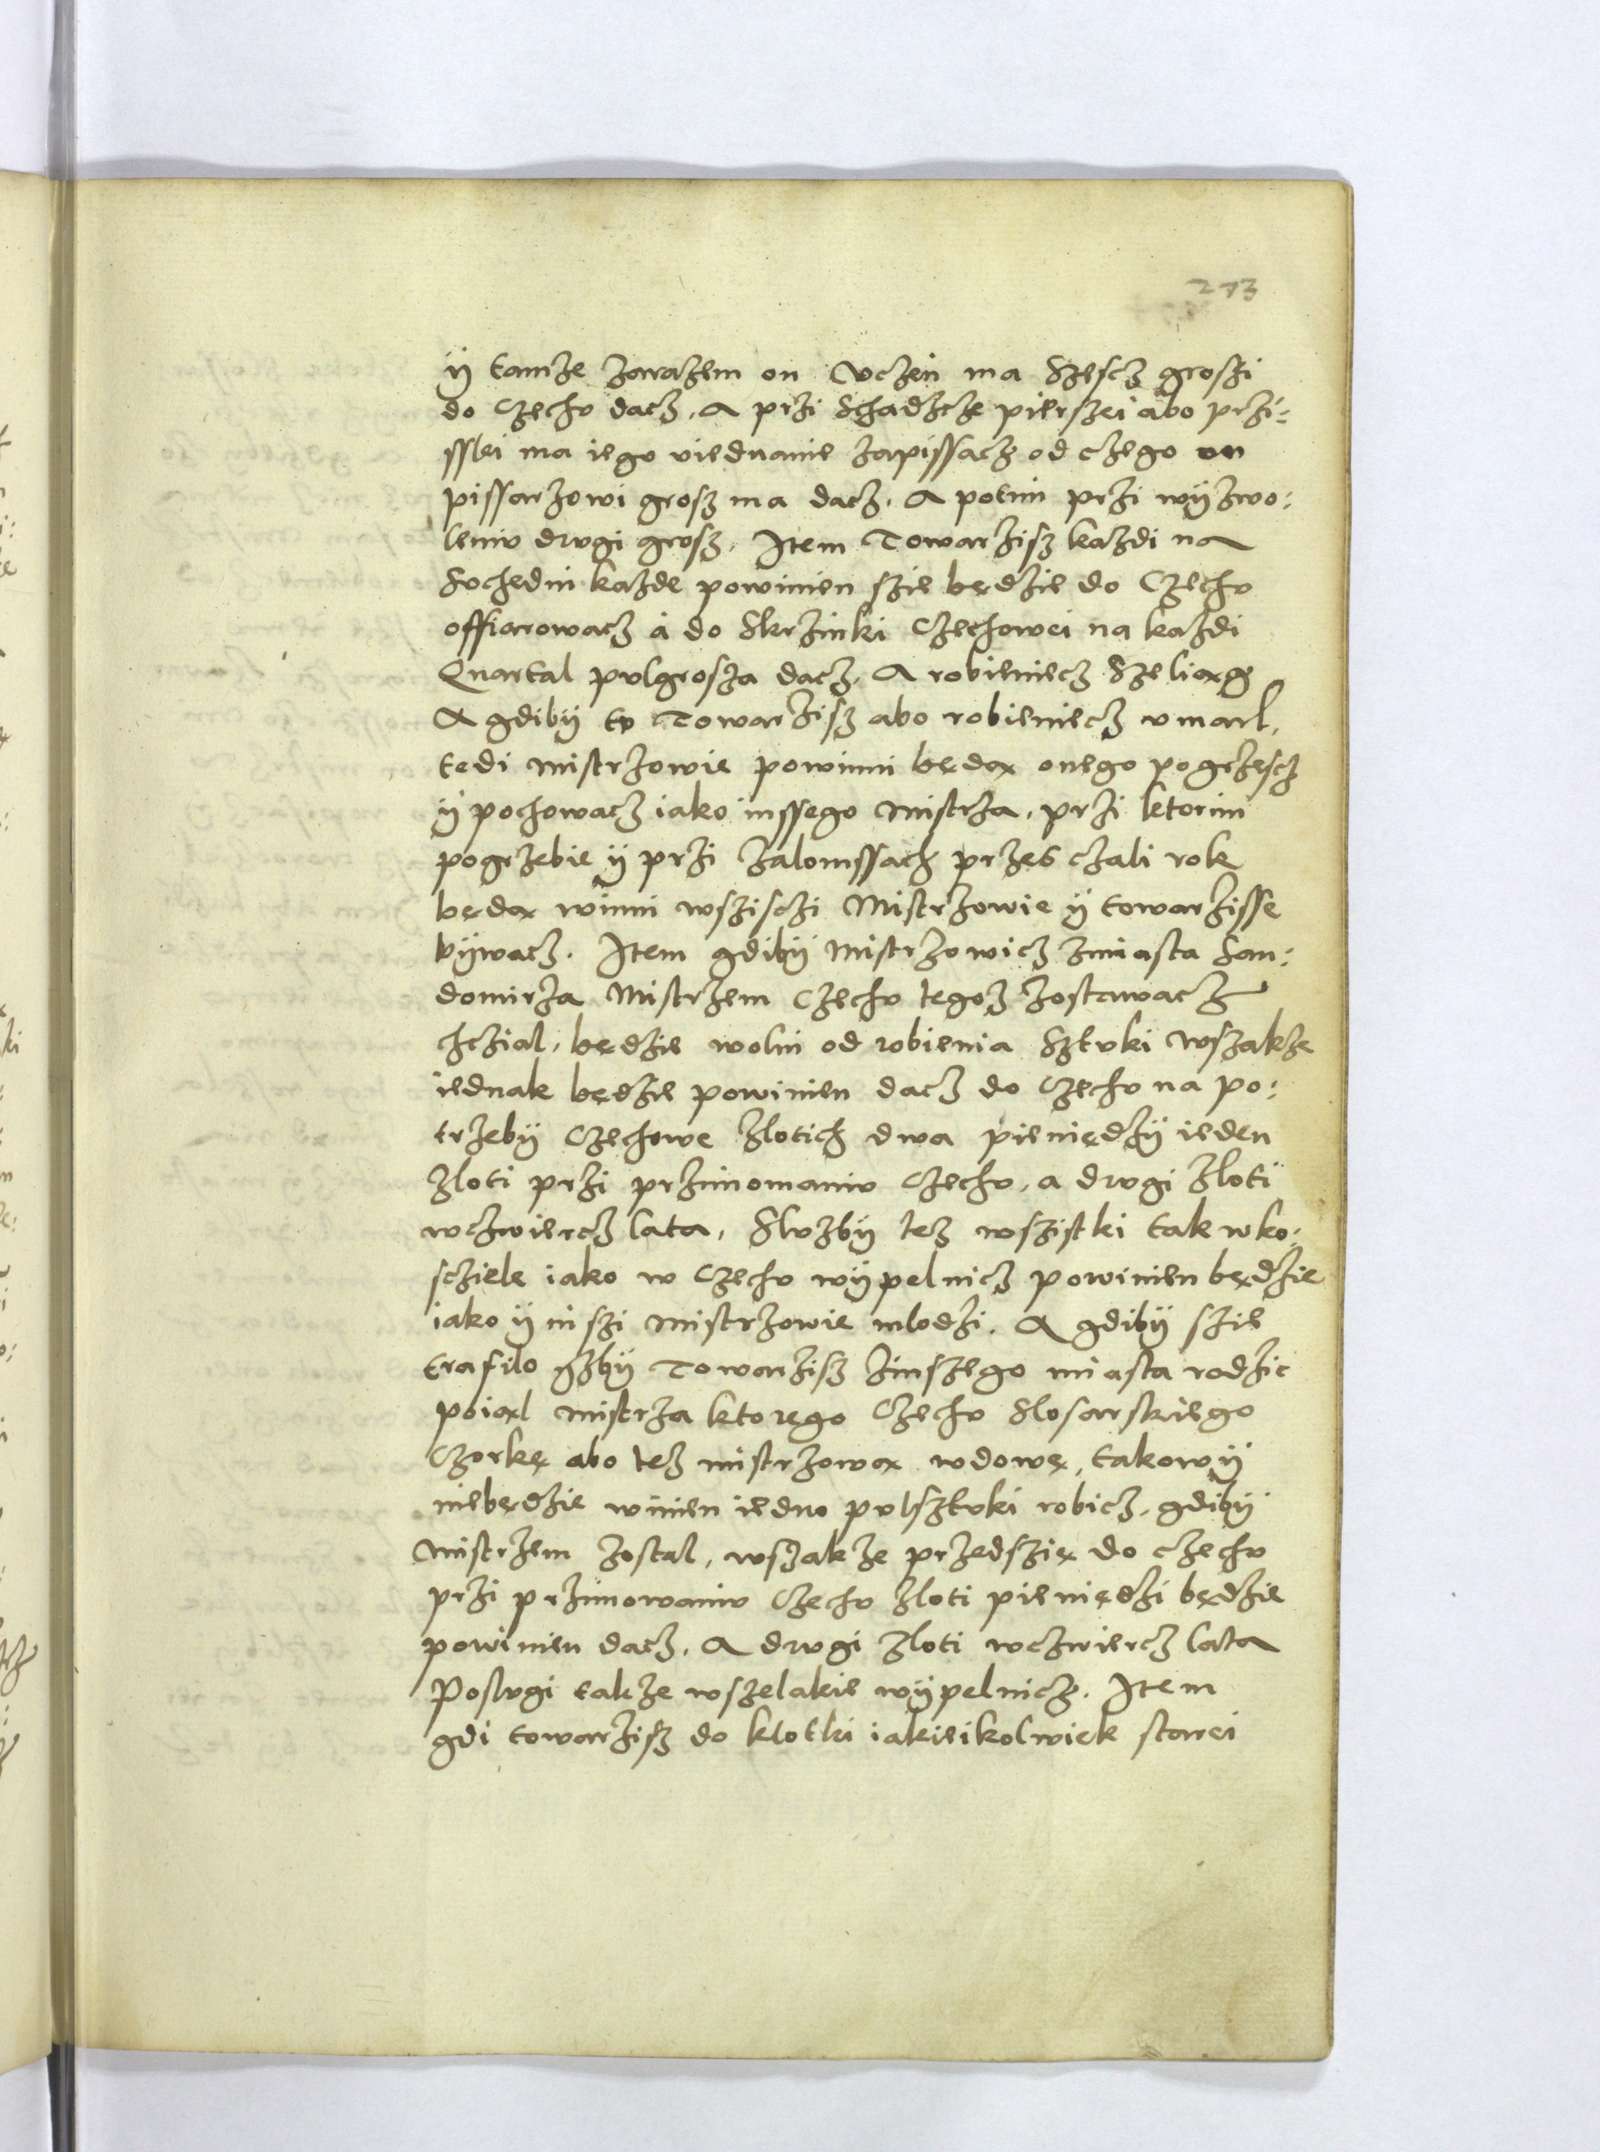 273
ÿ tamże zarazem on Vczeń ma Szescz groszi
do Czechv dacz. A przi Schadzcze pierszei abo przi-
sslei ma iego viednanie zapissacz od czego on
pissarzowi grosz ma dacz. A potim przi wÿzwo:
leniv drvgi grosz. Item Towarzisz każdi na
Sochedni każde powinien szie będzie do Czechv
offiarowacz a do Skrzinki Czechowei na każdi
Quartal pvlgrosza dacz. A robieniecz Szeliąg
A gdibÿ to Towarzisz abo robieniecz vmarl,
tedi Mistrzowie powinni będą onego pogrzescz
ÿ pochowacz iako inssego Mistrza, przi ktorim
pogrzebie ÿ przi żalomssach przes czali rok
będą winni wsziscżi Mistrzowie ÿ towarzisse
bÿwacz. Item gdibÿ Mistrzowicz zmiasta San:
domirza Mistrzem Czechv tegoż zostawacz
chcział, będzie wolni od robienia Sztvki wszakże
iednak będzie powinien dacz do Czechv na po:
trzebÿ Czechowe Zlotich dwa pieniędzÿ ieden
Zloti przi przimomaniv Czechv, a drvgi Zloti
wczwiercz lata, Slvzbÿ też wszistki tak wko:
sciele iako w Czechv wÿpelnicz powinien będzie
iako ÿ inszi Mistrzowie mlodzi. A gdibÿ szie
trafilo yżbÿ Towarzisz zinszego miasta rodzic
poiąl Mistrza ktorego Czechv Slosarskiego
Czorkę abo też mistrzową wdowę, takowÿ
niebędzie winien iedno pvlsztvki robicz, gdibÿ
Mistrzem zostal, wszakże przedszię do czechv
przi przimowaniv Czechv zloti pieniędzi będzie
powinien dacz. A drvgi Zloti wczwiercz lata
Poslvgi także wszelakie wÿpelnicz. Item
gdi towarzisz do klotki iakieikolwiek starei